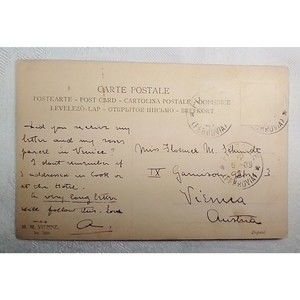 CARTE POSTALE
POSTKARTE - POST CARD - CARTOLINA POSTALE
LEVELEZŐ-LAP - ОТКРЫТОЕ ПИСЬМО - BREVKORT
Did you receive my
letter and my
parcel in Venice?
I don't remember if
I addressed in Cook or
at the Hotel.
A very long letter
will follow this. Love
A
Miss Florence M. Schmidt
IX Garnison 3
Vienna
Austria
M. M. VIENNE